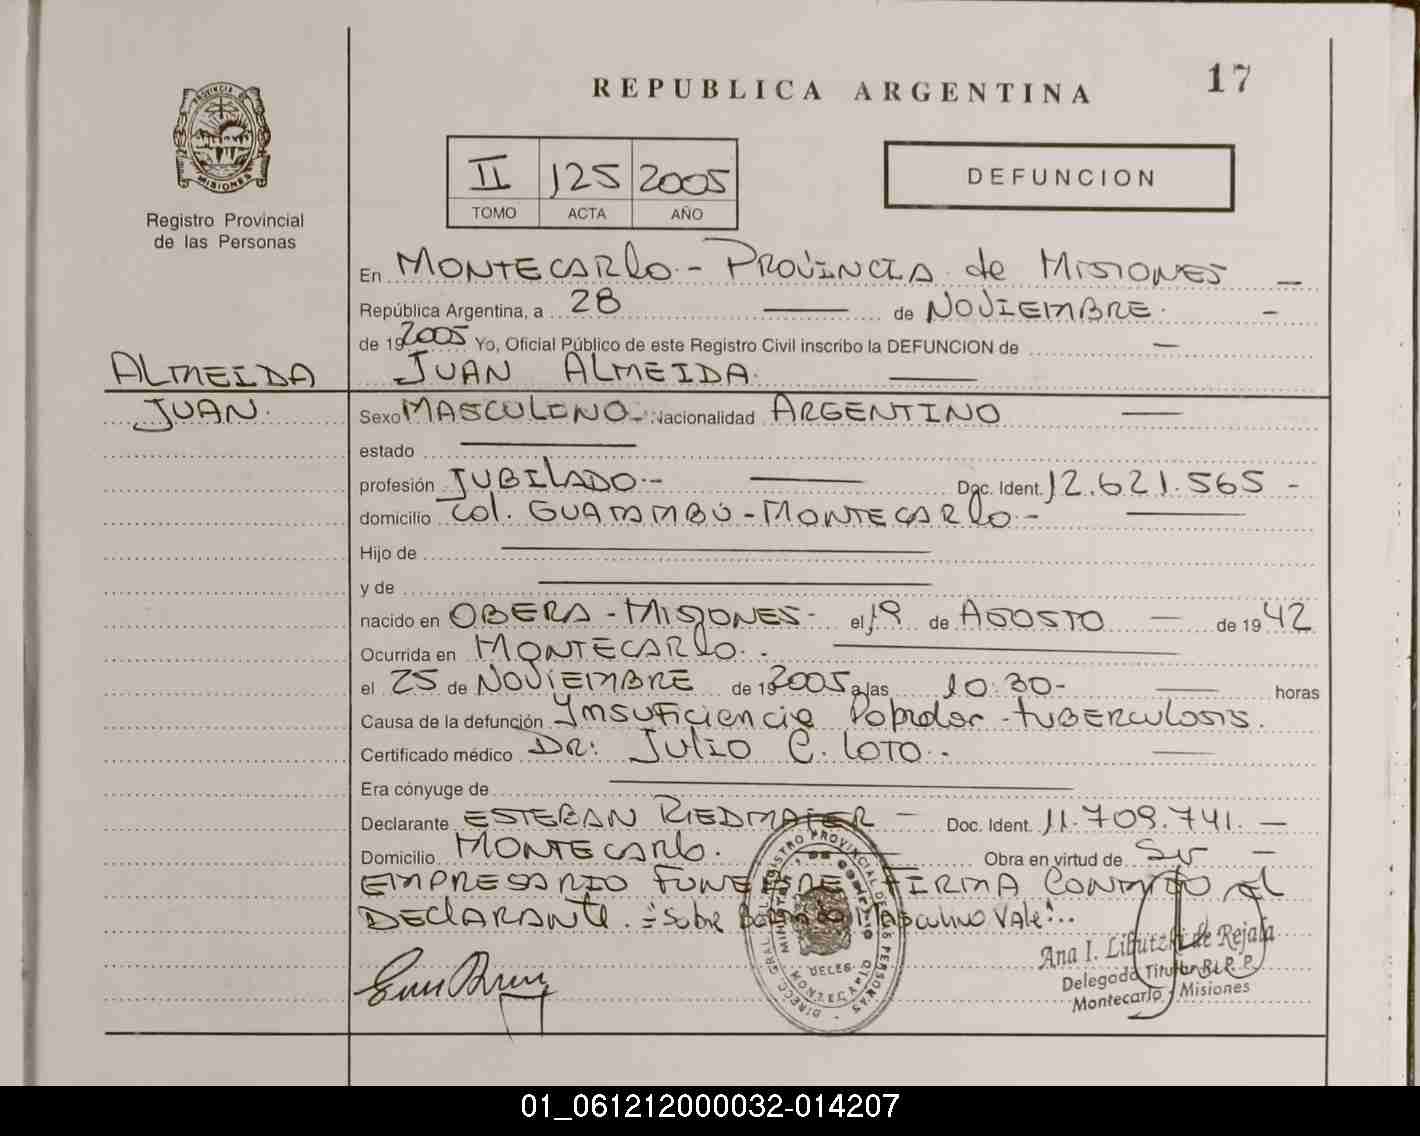 REPUBLICA ARGENTINA
17
PROVINCIA DE
MISIONES
Registro Provincial
de las Personas
II 125 2005
TOMO ACTA AÑO
DEFUNCION
En MONTECARLO.- PROVINCIA de MISIONES —
República Argentina, a 28 — de NOVIEMBRE. -
de 192005 Yo, Oficial Público de este Registro Civil inscribo la DEFUNCION de —
ALMEIDA JUAN ALMEIDA. —
JUAN. Sexo MASCULINO.- Nacionalidad ARGENTINO —
estado —
profesión JUBILADO.- — Doc. Ident. 12.621.565 -
domicilio Col. GUATAMBÚ - MONTECARLO.- —
Hijo de —
y de —
nacido en OBERA - MISIONES - el 19 de AGOSTO — de 1942
Ocurrida en MONTECARLO.. —
el 25 de NOVIEMBRE de 192005 a las 10:30- — horas
Causa de la defunción Ynsuficiencia - TUBERCULOSIS.
Certificado médico DR: JULIO C. LOTO.. —
Era cónyuge de —
Declarante ESTEBAN RIEDMAIER — Doc. Ident. 11.709.741. —
Domicilio MONTECARLO. — Obra en virtud de SU —
EMPRESARIO FUNEBRE FIRMA CONMIGO el
DECLARANTE. = Sobre Masculino Vale!..
DIRECC. GRAL. REGISTRO PROVINCIAL DE LAS PERSONAS
DELEG.
MONTECARLO
Ana I. Libutzki de Rejala
Delegada Titular R. P. P.
Montecarlo - Misiones
01_061212000032-014207